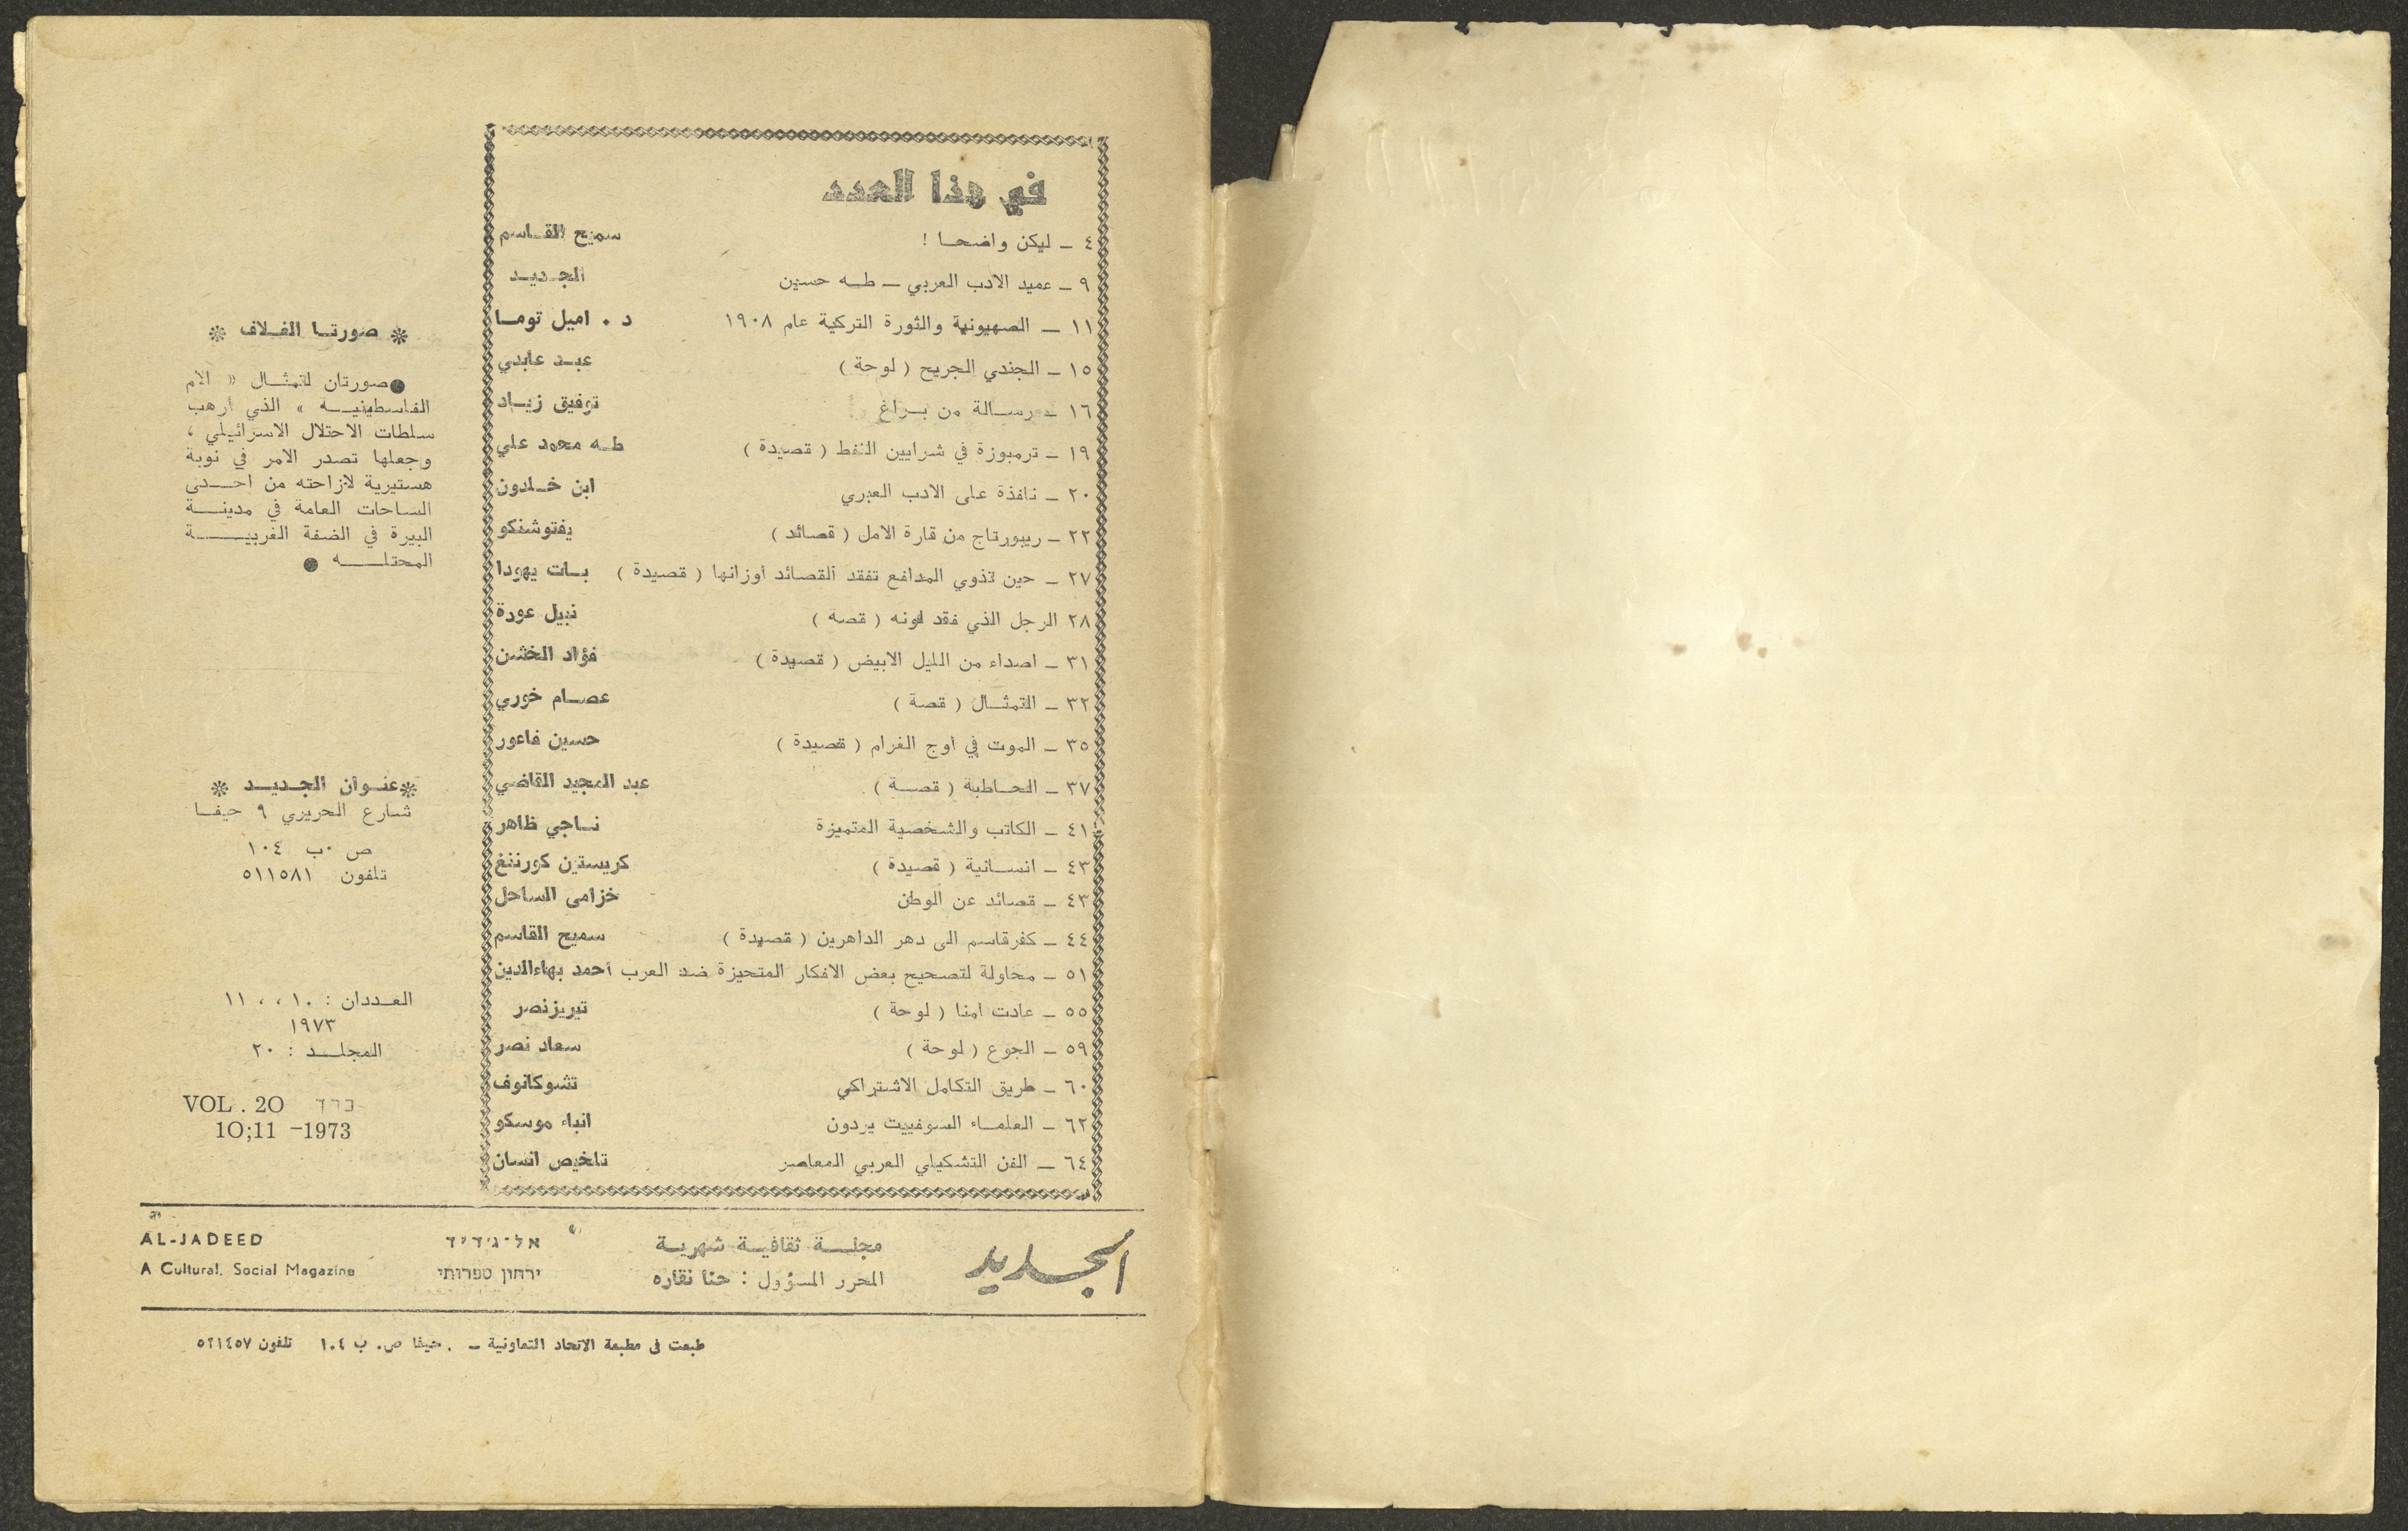 في هذا العدد
٤ ـ ليكن واضحا ! سميح القاسم
٩ ـ عميد الادب العربي ـ طه حسين الجديد
١١ ـ الصهيونية والثورة التركية عام ١٩٠٨ د . اميل توما
١٥ ـ الجندي الجريح ( لوحة ) عبد عابدي
١٦ ـ رسالة من براغ توفيق زياد
١٩ ـ ترمبوزة في شرايين النفط ( قصيدة ) طه محمد علي
٢٠ ـ نافذة على الادب العبري ابن خلدون
٢٢ ـ ريبورتاج من قارة الامل ( قصائد ) يفتوشنكو
٢٧ ـ حين تذوي المدافع تفقد القصائد أوزانها ( قصيدة ) بات يهودا
٢٨ الرجل الذي فقد لونه ( قصة ) نبيل عودة
٣١ ـ اصداء من الليل الابيض ( قصيدة ) فؤاد الخشن
٣٢ ـ التمثال ( قصة ) عصام خوري
٣٥ ـ الموت في أوج الغرام ( قصيدة ) حسين فاعور
٣٧ ـ الحاطبة ( قصة ) عبد المجيد القاضي
٤١ ـ الكاتب والشخصية المتميزة ناجي ظاهر
٤٣ ـ انسانية ( قصيدة ) كريستين كورننغ
٤٣ ـ قصائد عن الوطن خزامى الساحل
٤٤ ـ كفرقاسم الى دهر الداهرين ( قصيدة ) سميح القاسم
٥١ ـ محاولة لتصحيح بعض الافكار المتحيزة ضد العرب أحمد بهاءالدين
٥٥ ـ عادت امنا ( لوحة ) تيريزنصر
٥٩ ـ الجوع ( لوحة ) سعاد نصر
٦٠ ـ طريق التكامل الاشتراكي تشوكانوف
٦٢ ـ العلماء السوفييت يردون انباء موسكو
٦٤ ـ الفن التشكيلي العربي المعاصر تلخيص انسان
* صورتا الغلاف *
● صورتان لتمثال « الام
الفلسطينية » الذي أرهب
سلطات الاحتلال الاسرائيلي ،
وجعلها تصدر الامر في نوبة
هستيرية لازاحته من احدى
الساحات العامة في مدينة
البيرة في الضفة الغربية
المحتله ●
* عنوان الجديد *
شارع الحريري ٩ حيفا
ص ٠ب ١٠٤
تلفون ٥١١٥٨١
العددان : ١٠ ، ، ١١
١٩٧٣
المجلد : ٢٠
VOL . 20 כרך
10;11 -1973
الجديد
مجلة ثقافية شهرية
المحرر المسؤول : حنا نقاره
אל־ג׳דיד
ירחון ספרותי
AL-JADEED
A Cultural. Social Magazine
طبعت في مطبعة الاتحاد التعاونية ـ . حيفا ص. ب ١٠٤ تلفون ٥٢١٤٥٧